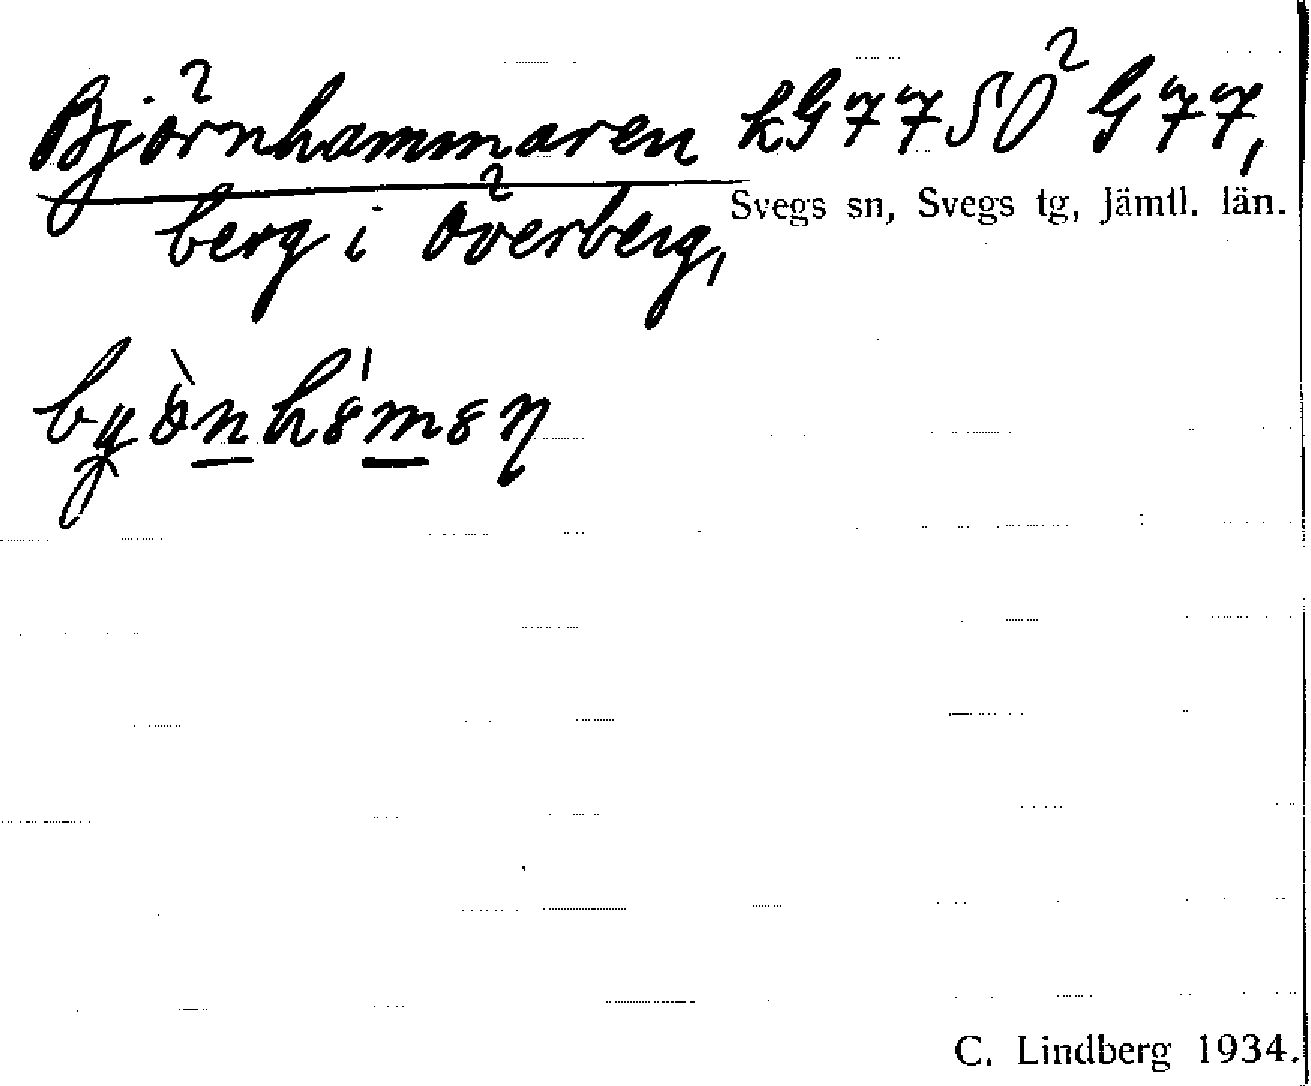 Björnhammaren kG77SÖ G77,
Svegs sn, Svegs tg, Jämtl. län.
berg i Överberg,
C. Lindberg 1934.